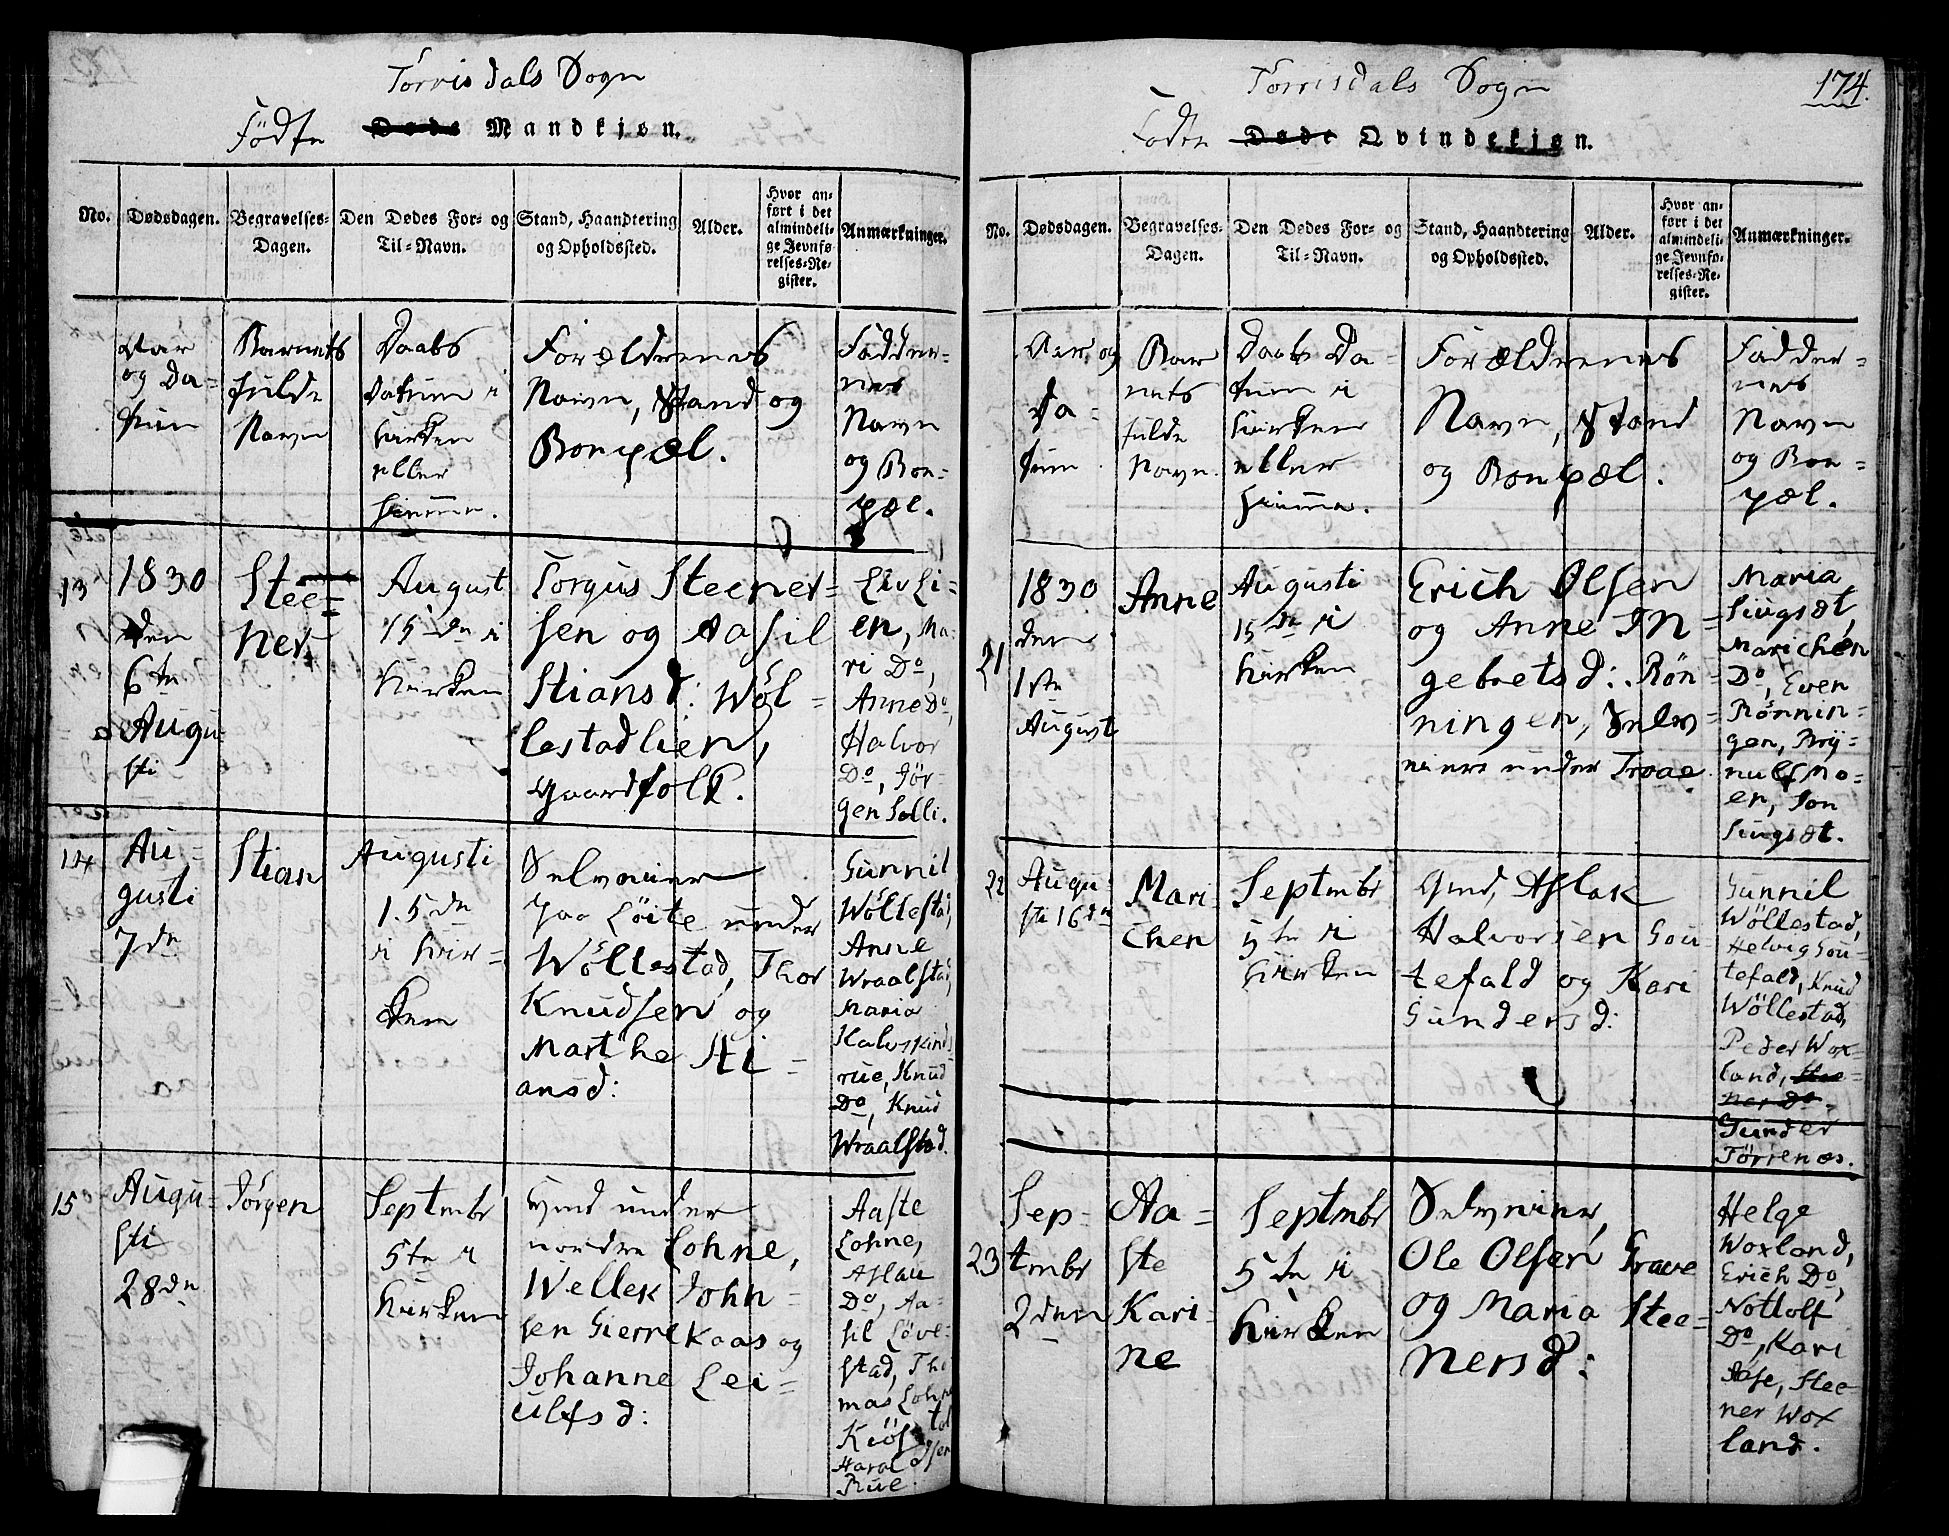 Torrisdals Sogn
Födte Døde Mandkjøn.
No.
Dødsdagen.
Begravelses-
Dagen.
Den Dødes For- og
Til-Navn.
Stand, Haandtering
og Opholdssted.
Alder.
Hvor an-
ført i det
almindeli-
ge Jevnfø-
relses-Re-
gister.
Anmærkninger.
Aar
og Da-
tum
Barnets
fulde
Navn
Daabs
Datum i
Kirken
eller
hiemme.
Forældrenes
Navn, Stand og
Bopæl.
Fadder-
nes
Navn
og Bo-
pæl.
13
1830
den
6te
Augu-
sti
Stee-
ner
August
15de i
Kirken
Torgus Steener-
sen og Aasil
Stiansd: Wöl-
lestadlien,
Gaardfolk.
Liv Li-
en, Ma-
ri Do,
Anne Do,
Halvor
Do, Jör-
gen Solli.
14
Au-
gusti
7de
Stian
Augusti
15de
i Kir-
ken
Selveier
paa Löite under
Wöllestad, Thor
Knudsen og
Marthe Sti-
ansd:
Gunnil
Wöllestad,
Anne
Wraalstad,
Maria
Kalvskind-
rue, Knud
Do, Knud
Wraalstad.
15
Augu-
sti
28de
Jörgen
Septmbr
5te i
Kirken
Gmd under
nordre Lohne,
Wellek John-
sen Gierrekaas og
Johanne Lei-
ulfsd:
Aaste
Lohne,
Aslau
Do, Aa-
sil Löve-
stad, Tho
mas Lohne
Harald
Rue.
Torrisdals Sogn
174.
Födte Døde Qvindekjøn.
No.
Dødsdagen.
Begravelses-
Dagen.
Den Dødes For- og
Til-Navn.
Stand, Haandtering
og Opholdssted.
Alder.
Hvor an-
ført i det
almindeli-
ge Jevnfø-
relses-Re-
gister.
Anmærkninger.
Aar og
Da-
tum
Bar
nets
fulde
Navn.
Daabs Da-
tum i
Kirken
eller
hiemme.
Forældrenes
Navn, Stand
og Bopæl.
Fadder-
nes
Navn
og Bo-
pæl.
21
1830
den
1ste
August
Anne
Augusti
15de i
Kirken
Erich Olsen
og Anne In-
gebretsd: Rön-
ningen, Selv-
eiere under Traae.
Maria
Hugsæt,
Marichen
Do, Even
Rönnin-
gen, Brÿ-
nulf Mo-
en, Jon
Hugsæt.
22
Augu-
sti 16de
Mari
chen
Septmbr
5te i
Kirken
Gmd, Aslak
Halvorsen Gou-
tefald og Kari
Gundersd:
Gunnil
Wöllestad,
Helvig Gou-
tefald, Knud
Wöllestad,
Peder Wox-
land, Stee-
ner Do.
Gunder
Törrenæs.
23
Sep-
tmbr
2den
Aa-
ste
Kari-
ne
Septmbr
5te i
Kirken
Selveier,
Ole Olsen Traae
og Maria Stee-
nersd:
Helge
Woxland,
Erich Do,
Nottolf
Do, Kari
Aase, Stee
ner Wox
land.